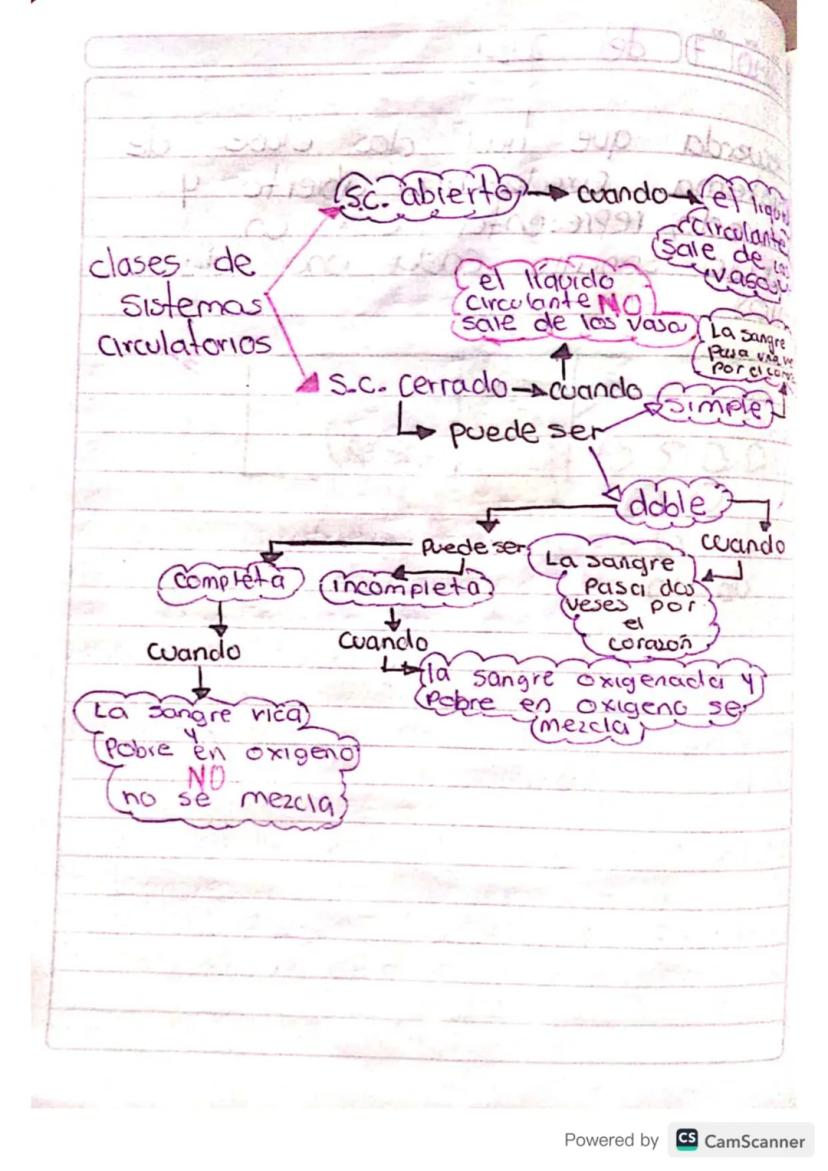 clases de
sistemas
circulatorios
S.C. abierto
cuando
el liqu
circulante
sale de
vaso
el líquido
circulante NO
sale de los vasa
S.C. cerrado
cuando
puede ser
simple
La sangre
Pasa
por el
doble
cuando
La sangre
Pasa dos
veses por
el
corazoñ
Puede ser
completa
cuando
La sangre rica
y
Pobre en oxigeno
NO
no se mezcla
incompleta
cuando
la sangre oxigenada y
Pobre en oxigeno se
mezcla
Powered by CS CamScanner